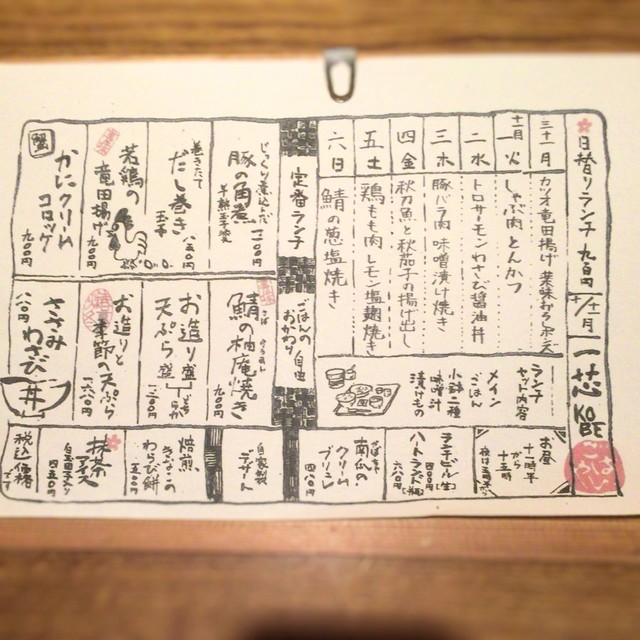 日替りランチ 九百円
十/十一月
一芯
KOBE
ごはん
三十一 月
カツオ竜田揚げ 葉葉おろしポンズ
十一月
一 火
しゃぶ肉とんかつ
二 水
トロサーモンわさび醤油丼
三 木
豚バラ肉味噌漬け焼き
四 金
秋刀魚と秋茄子の揚げ出し
五 土
鶏もも肉レモン塩麹焼き
六 日
鯖の葱塩焼き
ランチセット内容
メイン
ごはん
小鉢二種
味噌汁
漬けもの
お昼
十一時半
から
十五時
ランチビール[生]
四〇〇円
ハートランド[瓶]
六八〇円
かぼちゃ
南瓜の
クリーム
ブリュレ
四八〇円
定番ランチ
ごはんの
おかわり
自由
じっくり煮込んだ
豚の角煮
半熟玉子
一二〇〇円
巻きたて
だし巻き
玉子
八五〇円
若鶏の
竜田揚げ
九〇〇円
蟹
かにクリーム
コロッケ
九〇〇円
鯖の柚庵焼き
九〇〇円
お造り盛
天ぷら盛
どちらか
一二〇〇円
お造りと
季節の天ぷら
一六八〇円
ささみ
わさび
丼
八八〇円
自家製
デザート
焙煎
きなこの
わらび餅
五〇〇円
抹茶
アイス
白玉団子入り
四五〇円
税込価格
です